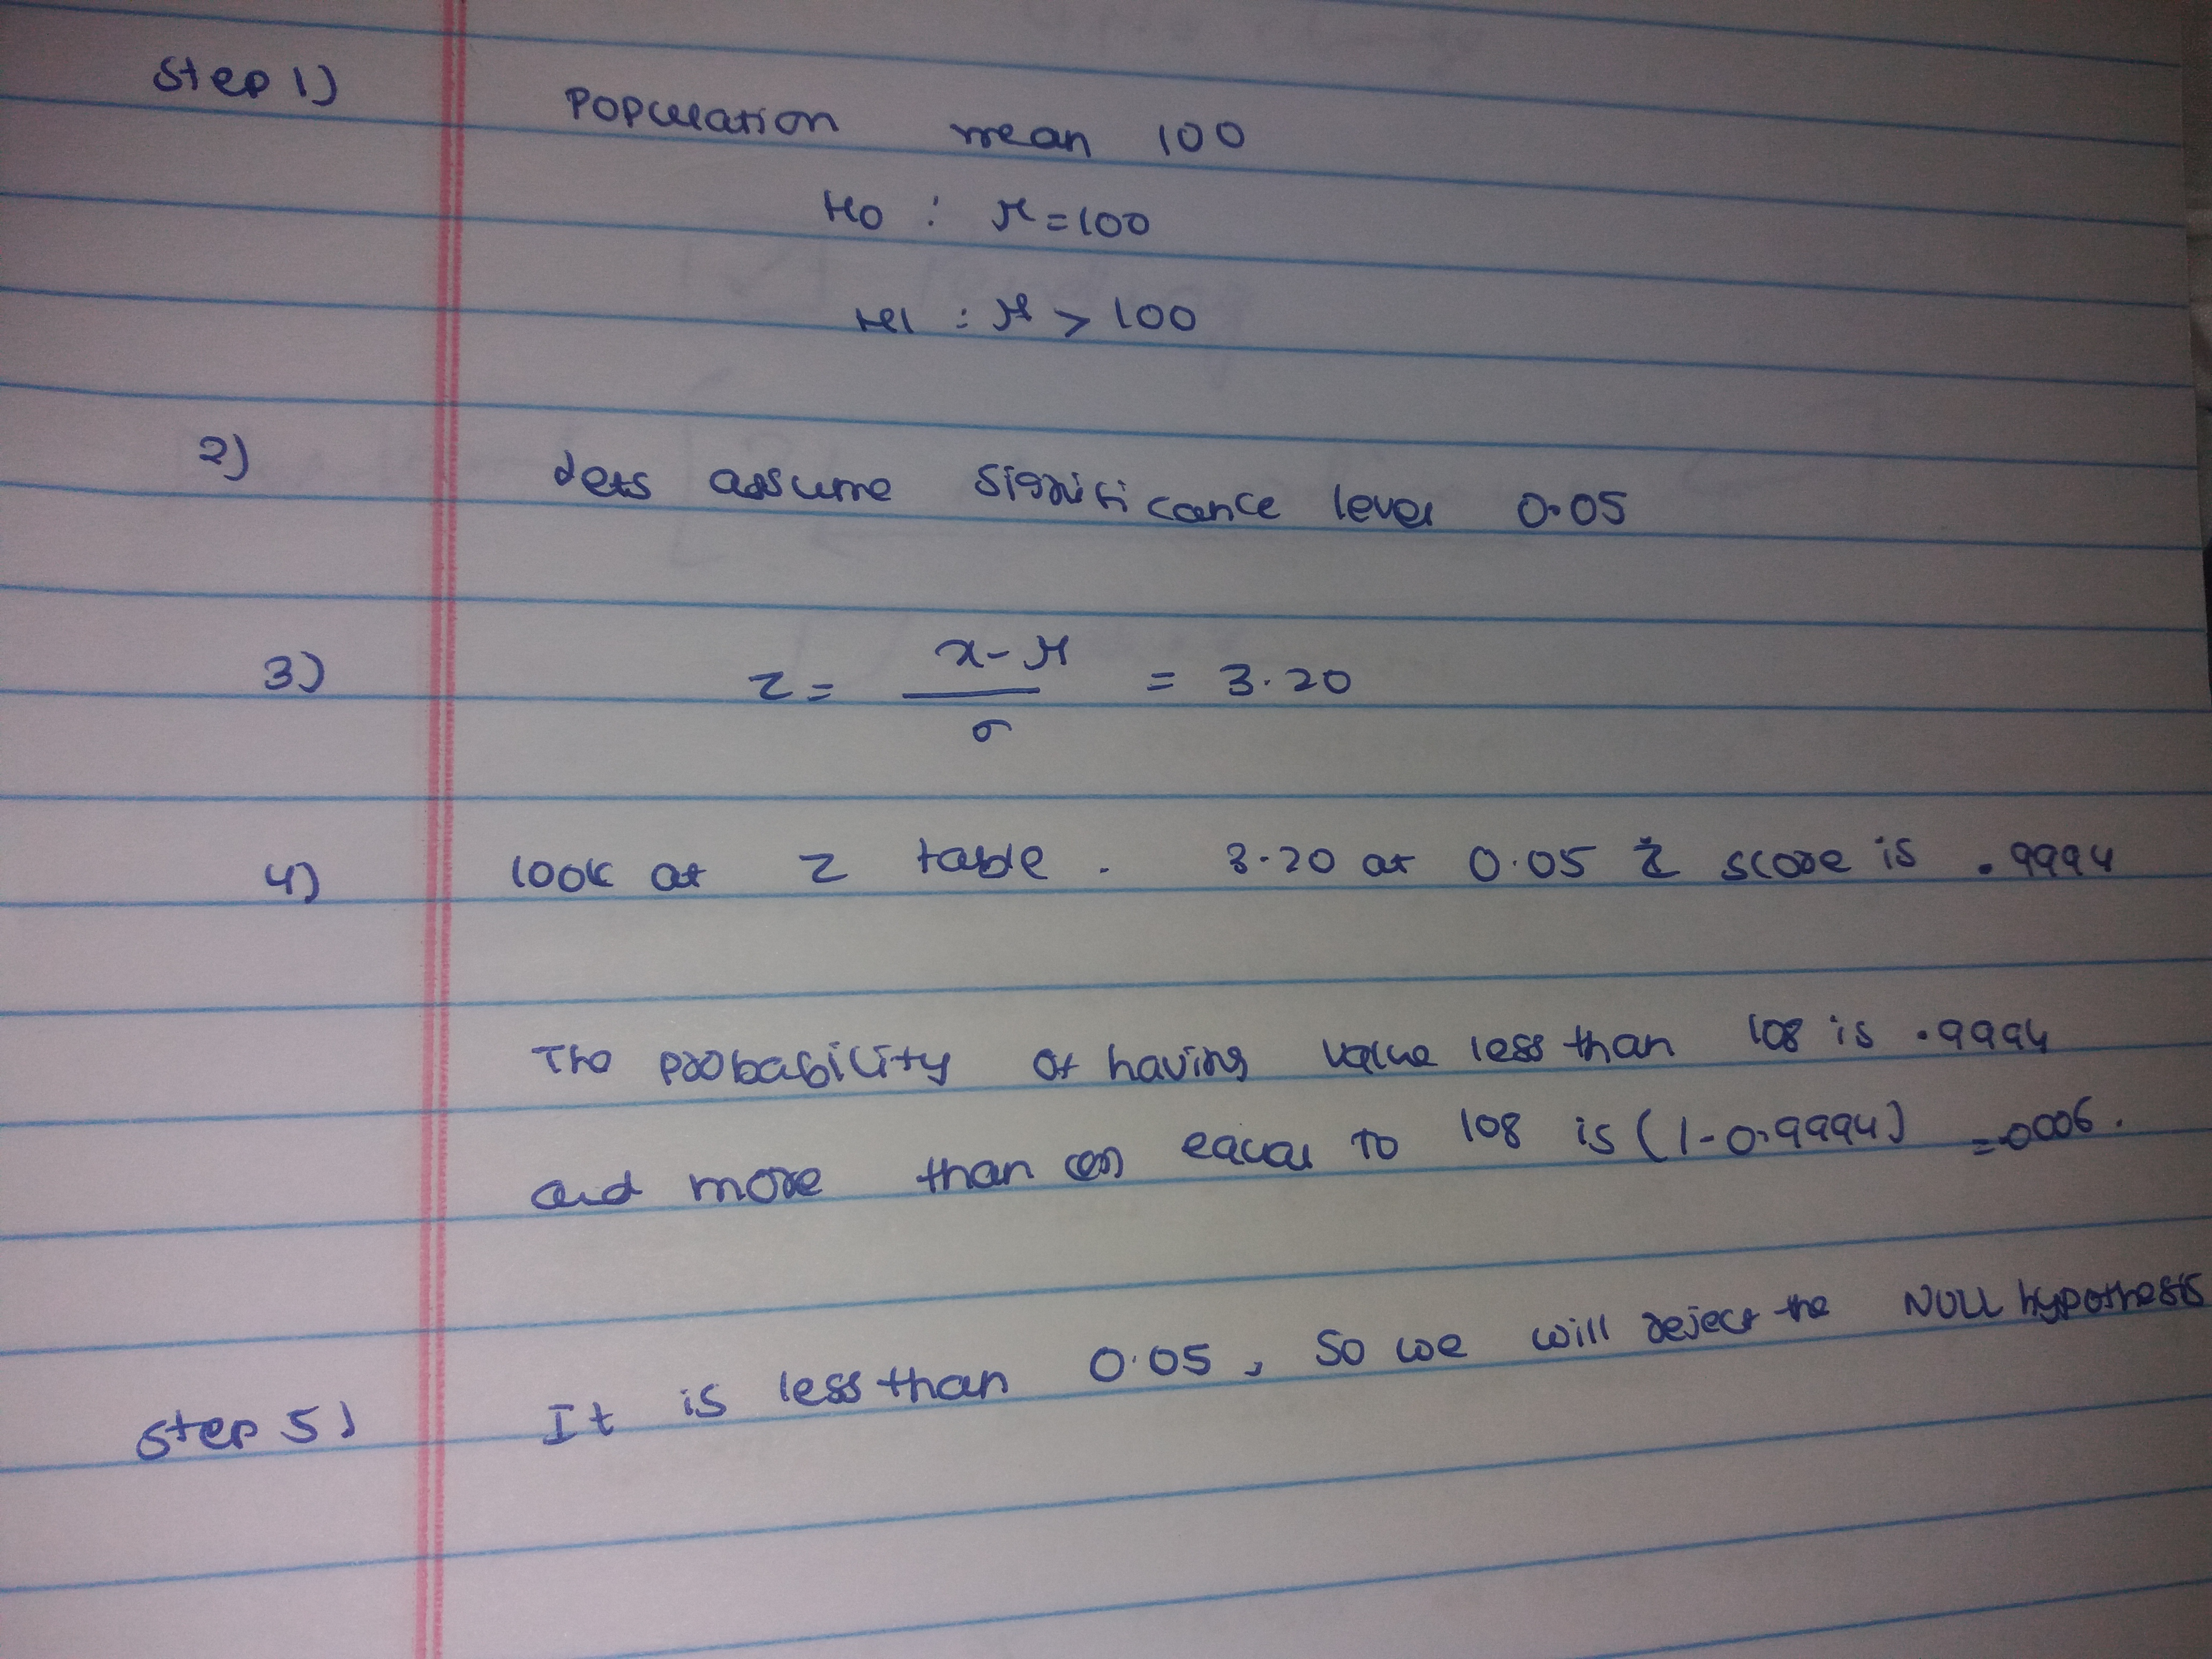 Step 1) Population mean 100
H0 : μ=100
H1 : μ > 100
2) lets assume significance level 0.05
3) z = x-μ / σ = 3.20
4) look at z table . 3.20 at 0.05 z score is .9994
The probability of having value less than 108 is .9994
and more than or equal to 108 is (1-0.9994) =.0006.
Step 5) It is less than 0.05, so we will reject the Null hypothesis